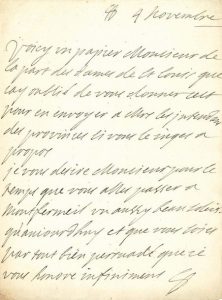 4 Novembre
voicy un papier Monsieur de
la part des dames de St Louis que
iay oublié de vous donner cest
pour en envoyer a tous les
des provinces si vous le iugés a
propos
je vous desire Monsieur pour le
temps que vous allés passer a
montfermeil un aussy beau soleil
quauiourdhuy et que vous soiés
par tout bien persuadé que ie
vous honore infiniment